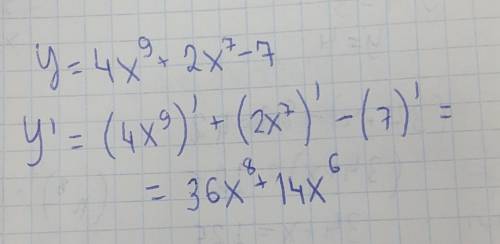 y = 4x⁹ + 2x⁷ - 7
y' = (4x⁹)' + (2x⁷)' - (7)' =
= 36x⁸ + 14x⁶